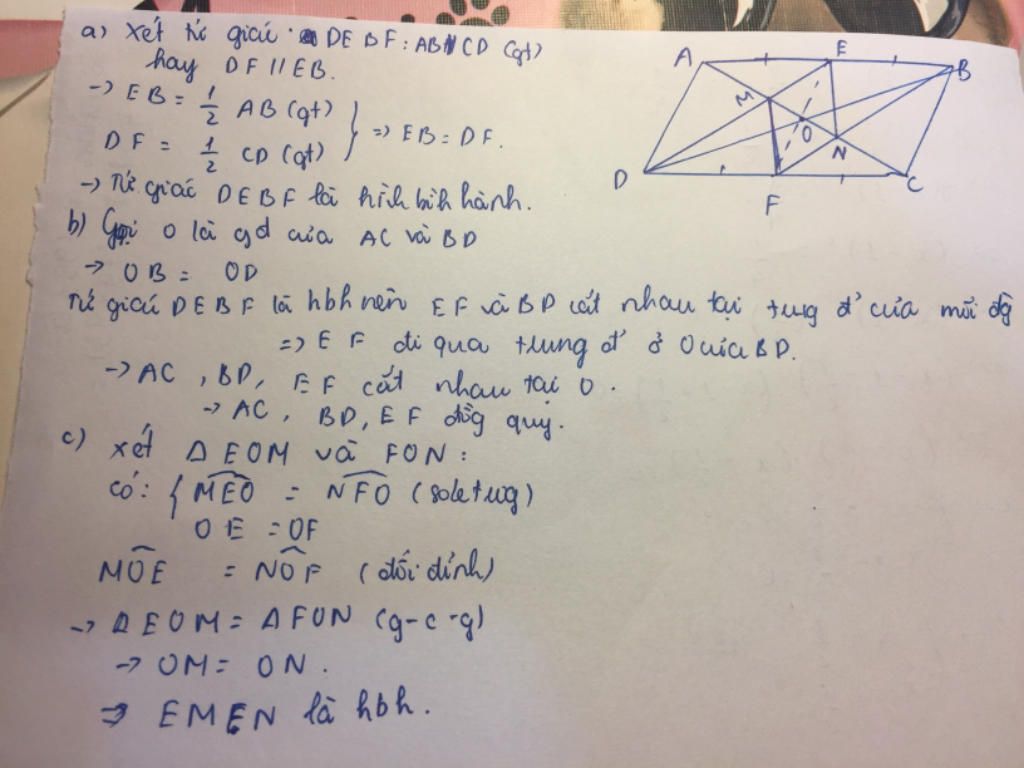 a) Xét tứ giác DEBF: AB // CD (gt)
hay DF // EB.
-> EB = 1/2 AB (gt)
DF = 1/2 CD (gt)
=> EB = DF.
-> Tứ giác DEBF là hình bình hành.
b) Gọi O là gđ của AC và BD
-> OB = OD
Tứ giác DEBF là hbh nên EF và BD cắt nhau tại tung đ' của mỗi đg
=> EF đi qua trung đ' O của BD.
-> AC, BD, EF cắt nhau tại O.
-> AC, BD, EF đồg quy.
c) Xét Δ EOM và FON:
có: { MEO = NFO (sole tung)
OE = OF
MOE = NOF (đối đỉnh)
-> Δ EOM = Δ FON (g-c-g)
-> OM = ON.
=> EMEN là hbh.
A
E
B
M
O
N
D
F
C